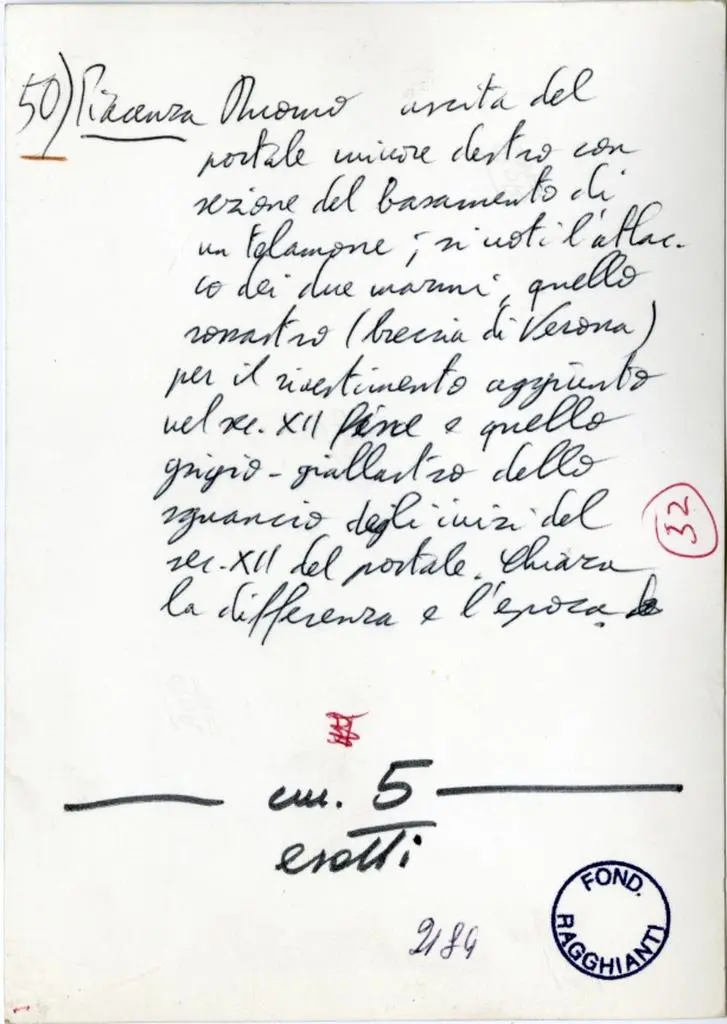 50) Piacenza Duomo uscita del
portale minore destro con
sezione del basamento di
un telamone; si noti l'attac-
co dei due marmi, quello
rossastro (breccia di Verona)
per il rivestimento aggiunto
nel sec. XII fine e quello
grigio-giallastro dello
sguancio degli inizi del
sec. XII del portale. Chiara
la differenza e l'epoca.
32
cm. 5
esatti
2184
FOND.
RAGGHIANTI